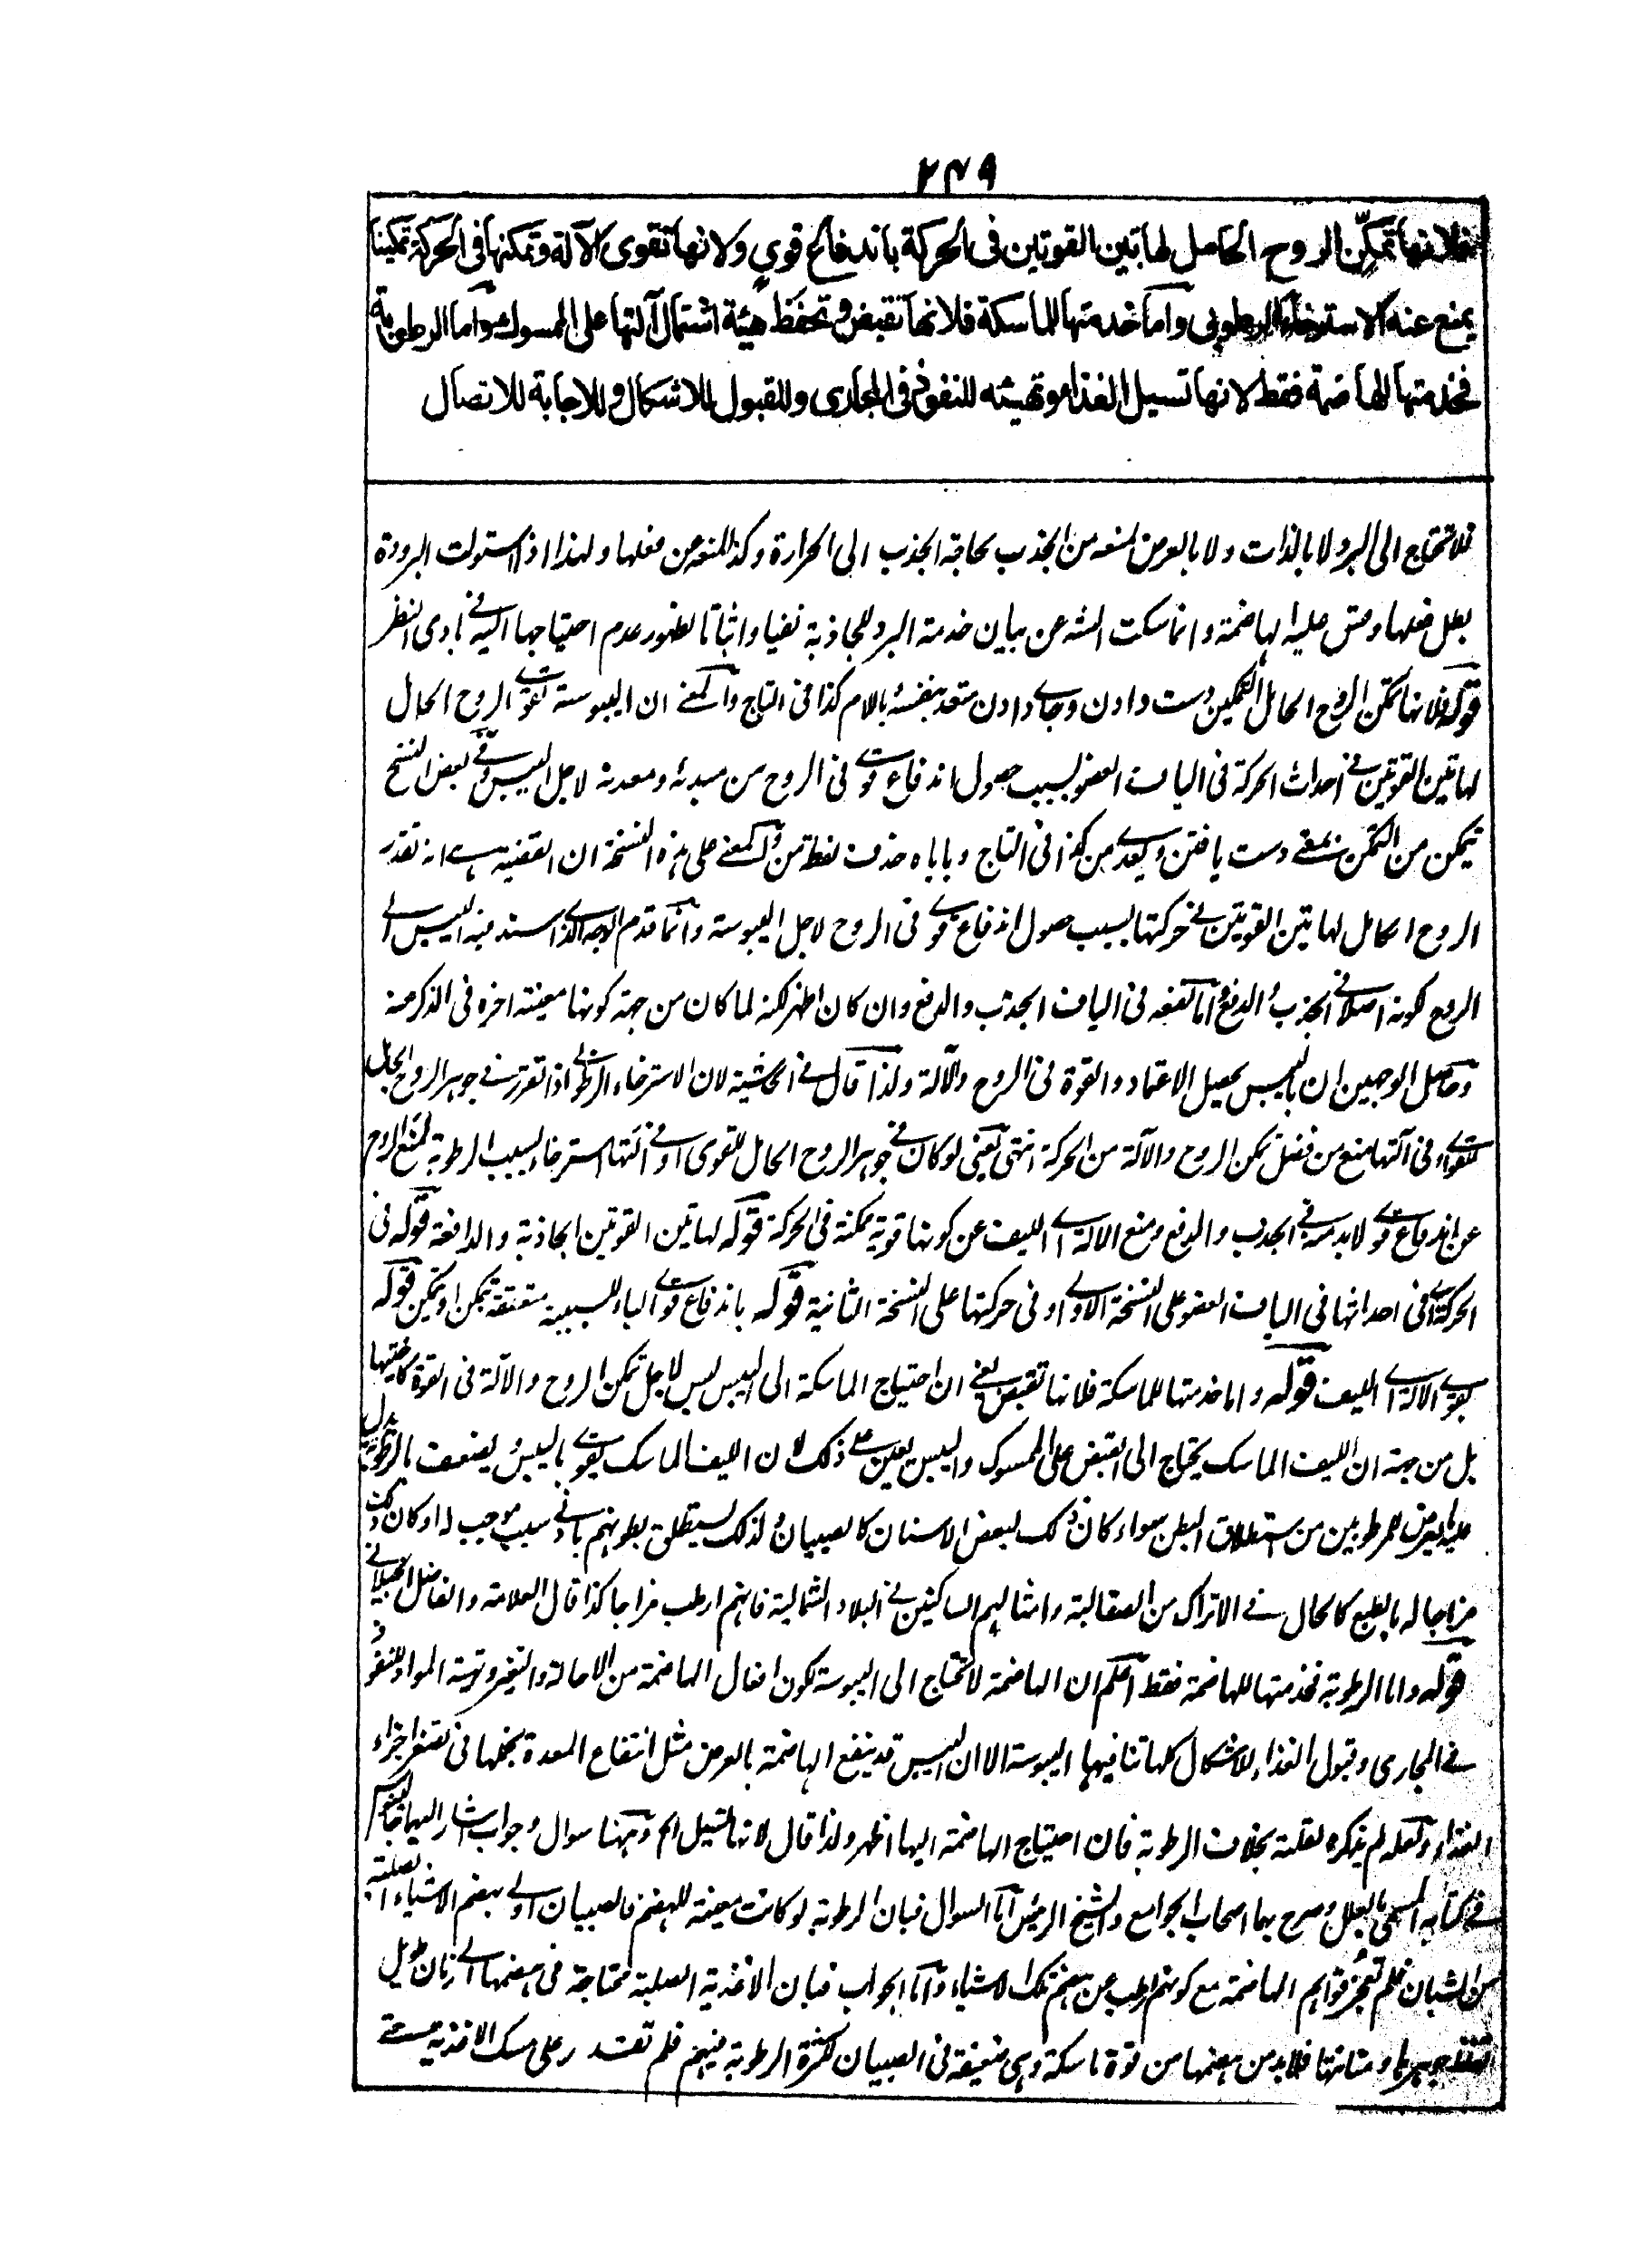 ٢٤٩
فلانها تمكّن الروح الحامل لهاتين القوتين فى الحركة باندفاع قوى ولانها تقوى الآلة وتمكنها فى الحركة تمكينا
يمنع عنه الاسترخاء الرطوبى واما خدمتها للماسكة فلانها تقبض وتحفظ هيئة اشتمال آلتها على الممسوك واما الرطوبة
فخدمتها للهاضمة فقط لانها تسيل الغذاء وتهيئه للنفوذ فى المجارى وللقبول للاشكال وللاجابة للاتصال
فلا تحتاج الى البرد لا بالذات ولا بالعرض لمنعه من الجذب لحاجة الجذب الى الحرارة وكذا لمنعه من فعلها ولهذا اذا استولت البرودة
بطل فعلها وقس عليه الهاضمة وانما سكت الشه عن بيان خدمة البرد للجاذبة نفيا واثباتا لظهور عدم احتياجها اليه فى بادى النظر
قوله فلانها تمكن الروح الحامل التمكين دست دادن وجاى دادن متعد بنفسه باللام كذا فى التاج والمعنى ان اليبوسة تقوى الروح الحامل
لهاتين القوتين فى احداث الحركة فى الياف العضو بسبب حصول اندفاع قوى فى الروح من مبدئه ومعدنه لاجل اليبس وفى بعض النسخ
تمكن من التمكن بمعنى دست يافتن ويعدى بمن كذا فى التاج وياباه حذف لفظ من والمعنى على هذه النسخة ان القضية هى انه تقدر
الروح الحامل لهاتين القوتين فى حركتها بسبب حصول اندفاع قوى فى الروح لاجل اليبوسة وانما قدم الوجه الذى اسند فيه اليبس الى
الروح لكونه اصلا فى الجذب والدفع واما نفعه فى الياف الجذب والدفع وان كان اظهر لكنه لما كان من جهة كونها معينة اخره فى الذكر عنه
وحاصل الوجهين ان باليبس يحصل الاعتماد والقوة فى الروح والآلة ولذا قال فى الحاشية لان الاسترخاء الرطوبى اذا تقرر فى جوهر الروح الحامل
للقوى او فى آلتها منع من فضل تمكن الروح والآلة من الحركة انتهى يعنى لو كان فى جوهر الروح الحامل للقوى او فى آلتها استرخاء بسبب الرطوبة لمنع الروح
عن اندفاع قوى لا بد منه فى الجذب والدفع ومنع الآلة اى الليف عن كونها قوية ممكنة فى الحركة قوله لهاتين القوتين الجاذبة والدافعة قوله فى
الحركة اى فى احداثها فى الياف العضو على النسخة الاولى او فى حركتها على النسخة الثانية قوله باندفاع قوى الباء للسببية متعلقة بتمكن او تمكين قوله
تقوى الآلة اى الليف قوله واما خدمتها للماسكة فلانها تقبض يعنى ان احتياج الماسكة الى اليبس ليس لاجل تمكن الروح والآلة فى القوة كاختيها
بل من جهة ان الليف الماسك يحتاج الى القبض على الممسوك واليبس يعين على ذلك لان الليف الماسك يقوى باليبس ويضعف بالرطوبة يدل
عليه ما يعرض للمرطوبين من استطلاق البطن سواء كان ذلك لبعض الاسنان كالصبيان ولذلك يستطلق بطونهم بادنى سبب موجب له او كان ذلك
مزاجا له بالطبع كالحال فى الاتراك من الصقالبة وامثالهم الساكنين فى البلاد الشمالية فانهم ارطب مزاجا كذا قال العلامة والفاضل الجيلانى
قوله واما الرطوبة فخدمتها للهاضمة فقط اعلم ان الهاضمة لا تحتاج الى اليبوسة لكون افعال الهاضمة من الاحالة والتغير وتهيئة المواد للنفوذ
فى المجارى وقبول الغذاء للاشكال كلها تنافيها اليبوسة الا ان اليبس قد ينفع الهاضمة بالعرض مثل انتفاع المعدة بخملها فى تصغر اجزاء
الغذاء ولعله لم يذكره لقلته بخلاف الرطوبة فان احتياج الهاضمة اليها اظهر ولذا قال لانها تسيل الخ وههنا سوال وجواب اشار اليهما جالينوس
فى كتابه المسمى بالعلل وصرح بهما اصحاب الجوامع والشيخ الرئيس اما السوال فبان الرطوبة لو كانت معينة للهضم فالصبيان اولى بهضم الاشياء الصلبة
من الشبان فلم تعجز قواهم الهاضمة مع كونهم ارطب عن هضم تلك الاشياء واما الجواب فبان الاغذية الصلبة محتاجة فى هضمها الى زمان طويل
لغلظ جوهرها ومتانتها فلا بد من هضمها من قوة ماسكة وهى ضعيفة فى الصبيان لكثرة الرطوبة فيهم فلم تقدر على مسك الاغذية حتى